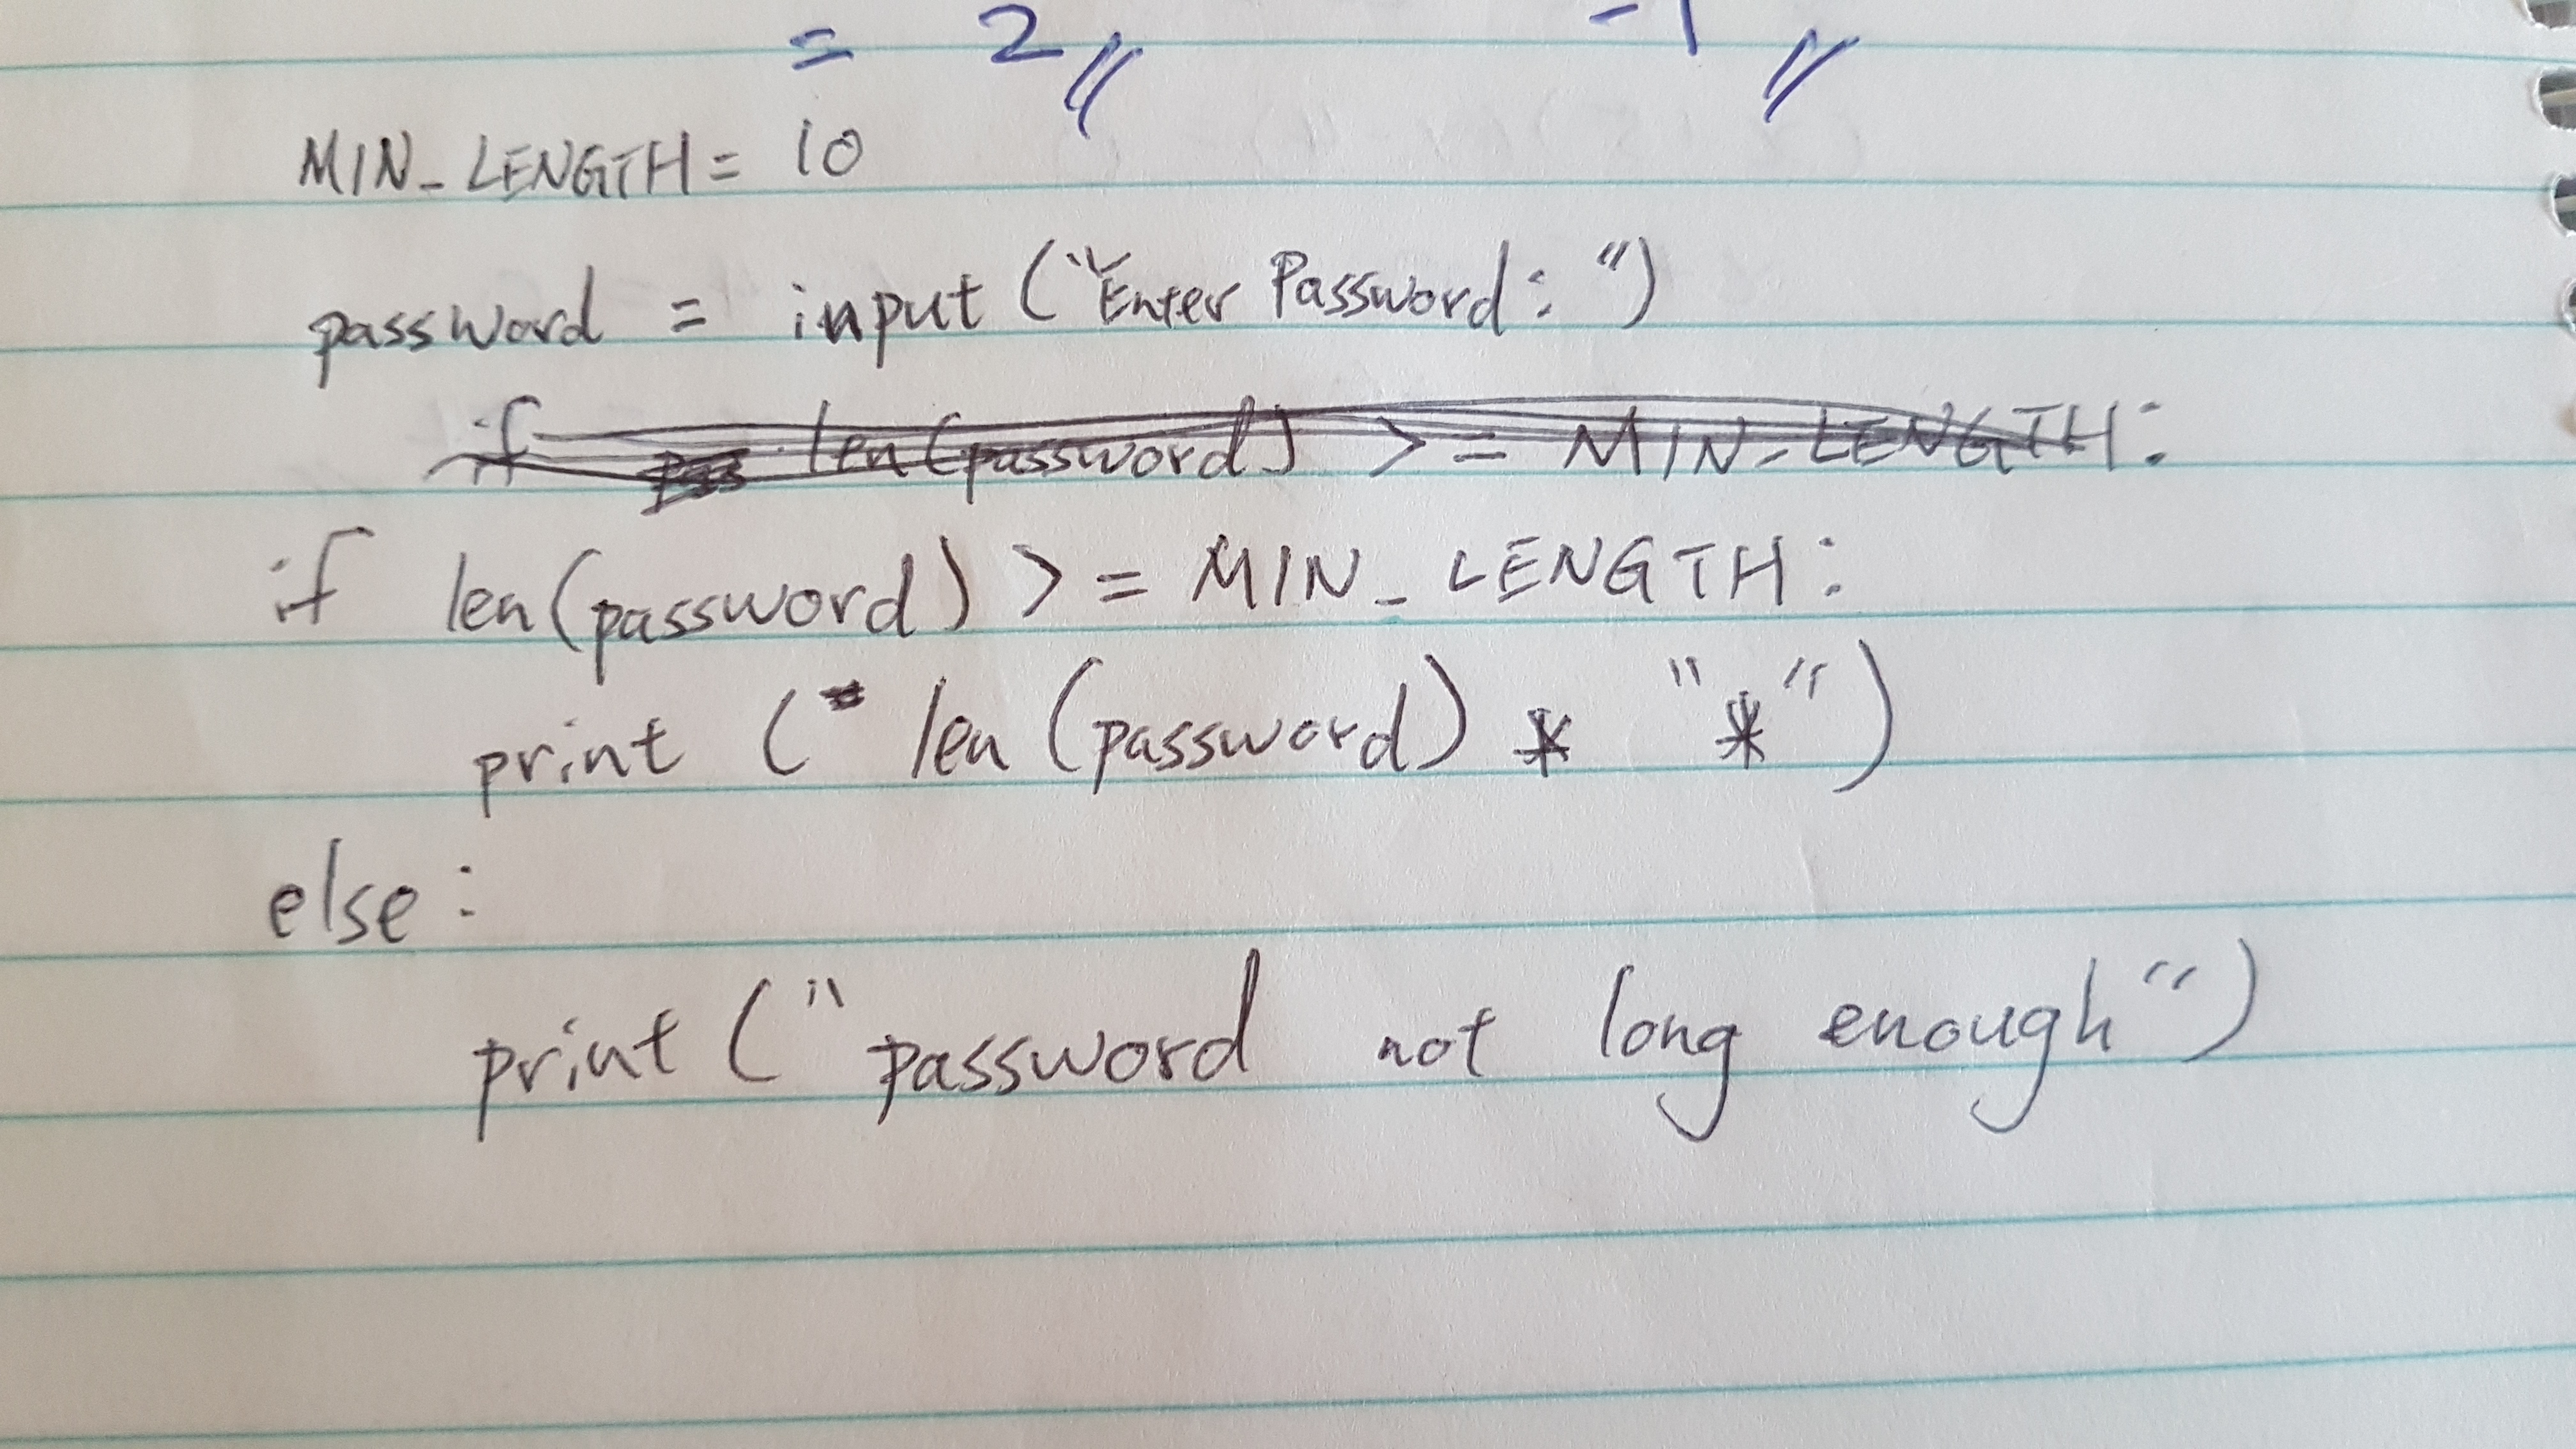 = 2 -1
MIN_LENGTH = 10
password = input ("Enter Password: ")
if len(password) >= MIN_LENGTH:
if len(password) >= MIN_LENGTH:
print ( len (password) * "*")
else:
print ("password not long enough")